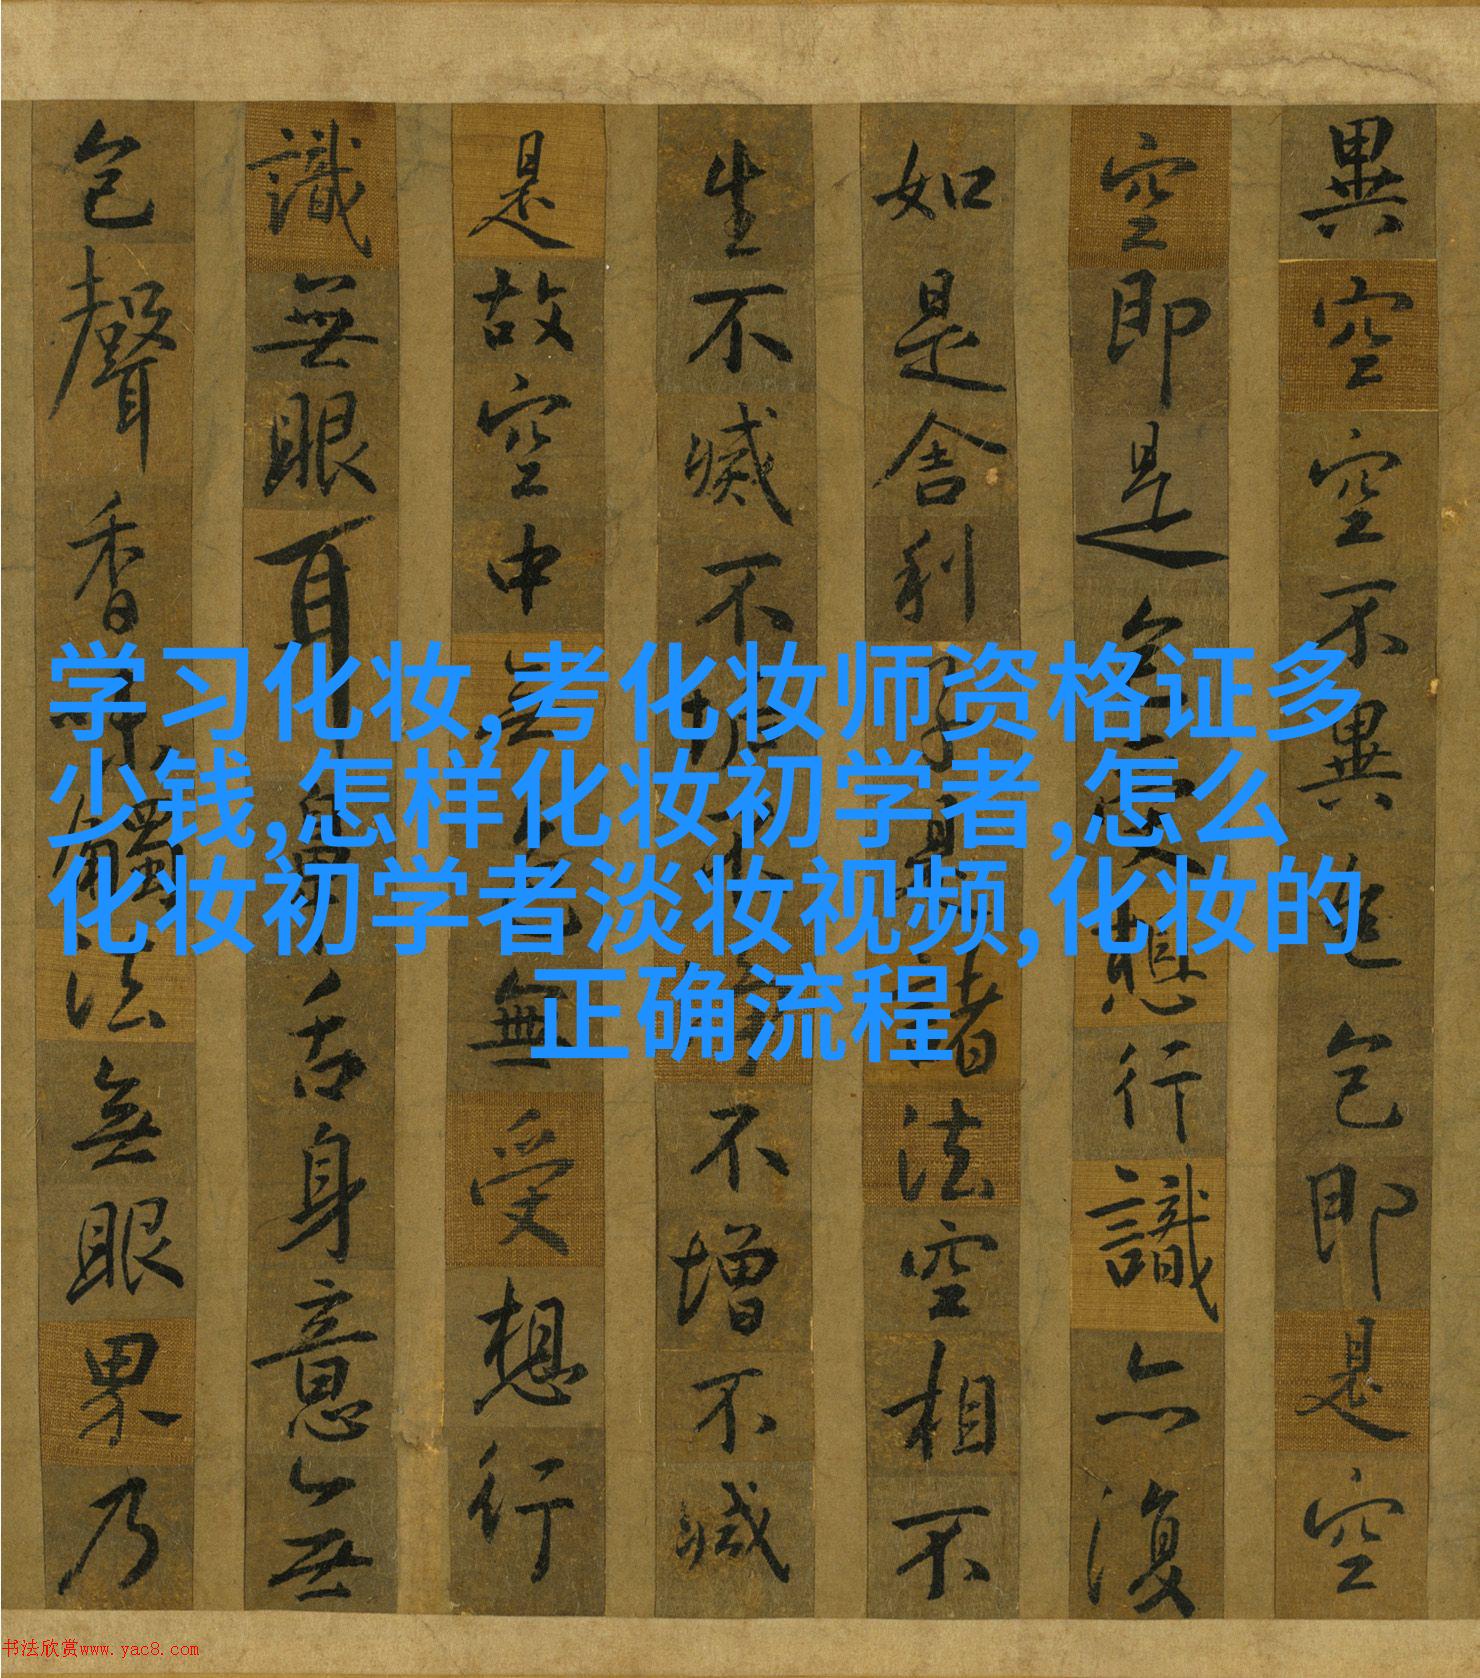 異空空不異色色即是空
空即是色受想行識亦復
如是舍利子是諸法空相不
生不滅不垢不淨不增不減
是故空中無色無受想行
識無眼耳鼻舌身意無
色聲香味觸法無眼界乃
学习化妆,考化妆师资格证多
少钱,怎样化妆初学者,怎么
化妆初学者淡妆视频,化妆的
正确流程
书法欣赏www.yac8.com